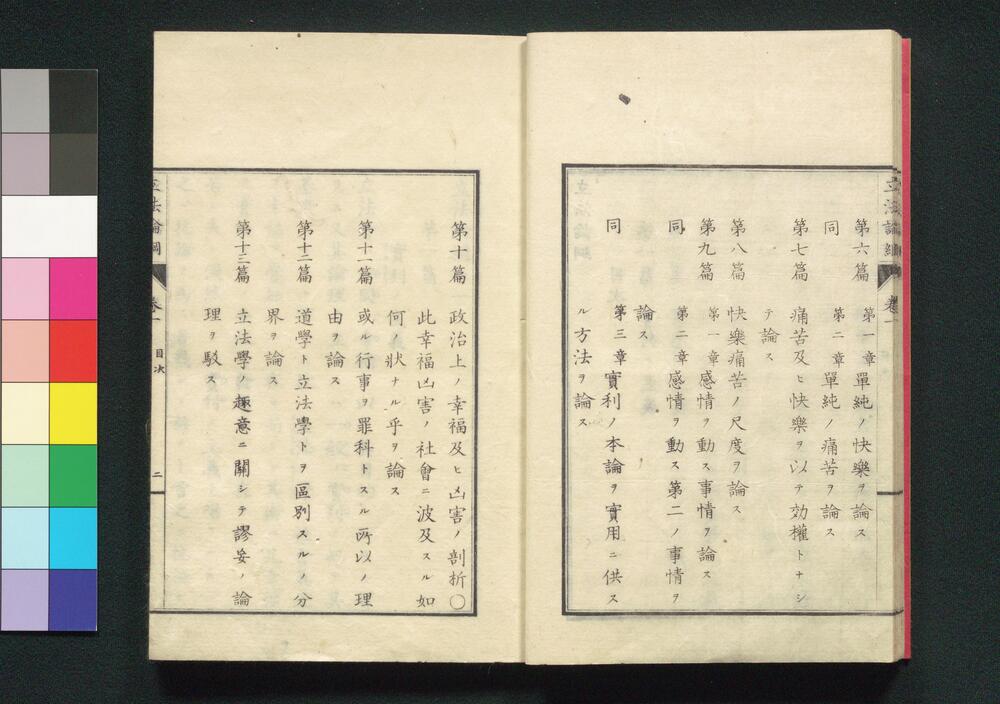 立法論綱
卷一
第六篇 第一章 單純ノ快樂ヲ論ス
同 第二章 單純ノ痛苦ヲ論ス
第七篇 痛苦及ヒ快樂ヲ以テ効權トナシ
テ論ス
第八篇 快樂痛苦ノ尺度ヲ論ス
第九篇 第一章 感情ヲ動ス事情ヲ論ス
同 第二章 感情ヲ動ス第二ノ事情ヲ
論ス
同 第三章 實利ノ本論ヲ實用ニ供ス
ル方法ヲ論ス
第十篇 政治上ノ幸福及ヒ凶害ノ剖折〇
此幸福凶害ノ社會ニ波及スル如
何ノ狀ナル乎ヲ論ス
第十一篇 或ル行事ヲ罪科トスル所以ノ理
由ヲ論ス
第十二篇 道學ト立法學トヲ區別スルノ分
界ヲ論ス
第十三篇 立法學ノ趣意ニ關シテ謬妄ノ論
理ヲ駁ス
立法論綱
卷一
目次
二